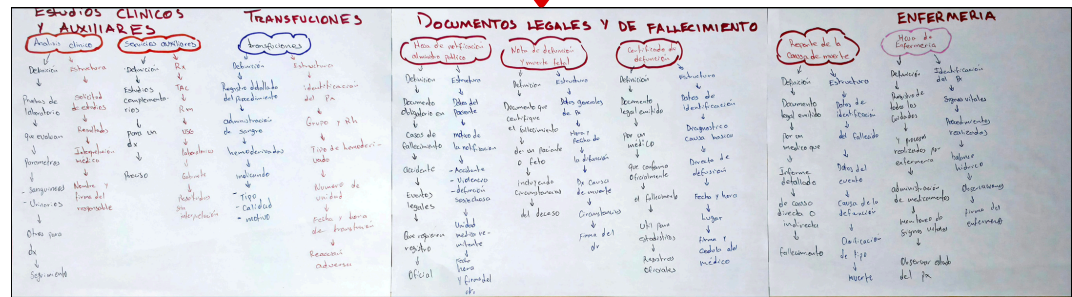 Estudios CLINICOS
Y AUXILIARES
Analisis clinico
Definición
Pruebas de
laboratorio
que evaluan
Parametros
- Sanguineos
- Urinarios
Otros para
Dx
Seguimiento
Estructura
Solicitud
de estudios
Resultados
Interpretacion
medico
Nombre y
firma del
responsable
Servicios auxiliares
Definición
Estudios
complementa-
rios
Para un
dx
Preciso
Rx
TAC
Rm
USG
Laboratorio
Gabinete
Resultados
sin
interpretación
TRANSFUCIONES
transfuciones
Definición
Registro detallado
del procedimiento
administración
de sangre
hemoderivados
indicando
- Tipo
- Calidad
- motivo
Estructura
identificacion
del Pa
Grupo y Rh
Tipo de hemoderi-
vado
Numero de
unidad
Fecha y hora
de transfución
Reacción
adversa
DOCUMENTOS LEGALES Y DE FALLECIMIENTO
Hoja de notificación
al ministerio público
Definicion
Documento
obligatorio en
Casos de
fallecimiento
accidente
Eventos
legales
Que requieren
registro
Oficial
Estructura
Datos del
Paciente
Motivo de
la notificacion
- Accidente
- Violencia
- defunción
sospechosa
Unidad
medica re-
mitente
Fecha
hora
y firma del
dr.
Nota de defunción
y muerte fetal
Definicion
Documento que
certifique
el fallecimiento
de un paciente
o feto
incluyendo
circunstancias
del deceso
Estructura
Datos generales
de Pa
Hora y
Fecha de
la difunción
Dx Causa
de muerte
Circunstancias
Firma del
dr
Certificado de
defunción
Definicion
Documento
legal emitido
por un
médico
que confirma
Oficialmente
el fallecimiento
Util para
estadisticas
Registros
Oficiales
Estructura
Datos de
identificación
Diagnostico
causa basica
Directo de
defuncion
Fecha y hora
Lugar
Firma y
Cedula del
médico
ENFERMERIA
Reporte de la
causa de muerte
Definición
Documento
legal emitido
Por un
medico que
Informe
detallado
de causa
directa O
indirecta
fallecimiento
Estructura
Datos de
identificación
del fallecido
Datos del
evento
Causa de la
defunción
Clasificacion
de tipo
muerte
Hoja de
Enfermeria
Definición
Registro de
todos los
Cuidados
y procesos
realizados por
enfermeria
administración
de medicamentos
Monitoreo de
signos vitales
Observar estado
del Pa
Identificación
del Pa
Signos vitales
Procedimientos
realizados
balance
hidrico
Observaciones
firma del
enfermero